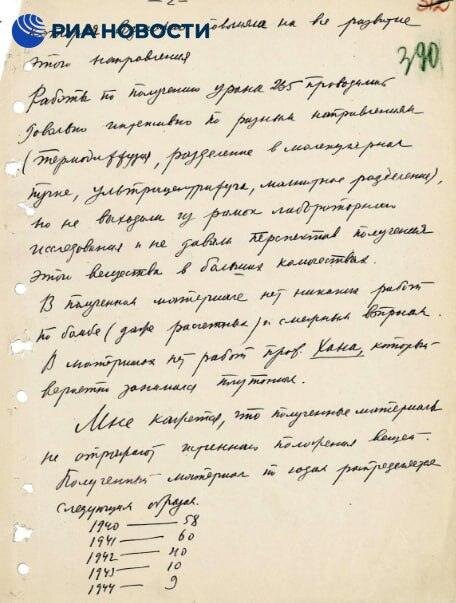 — 2 —
312
390
РИА НОВОСТИ
повлияла на все развитие
этого направления
Работы по получению урана 235 проводились
довольно интенсивно по разным направлениям
(термодиффузия, разделение в молекулярном
пучке, ультрацентрифуга, магнитное разделение),
но не выходили из рамок лабораторного
исследования и не давали перспектив получения
этого вещества в больших количествах.
В полученном материале нет никаких работ
по бомбе (даже расчетных) и смежным вопросам.
В материалах нет работ проф. Хана, который
вероятно занимался плутонием.
Мне кажется, что полученные материалы
не отражают истинного положения вещей.
Полученный материал по годам распределяется
следующим образом.
1940 — 58
1941 — 60
1942 — 40
1943 — 10
1944 — 9